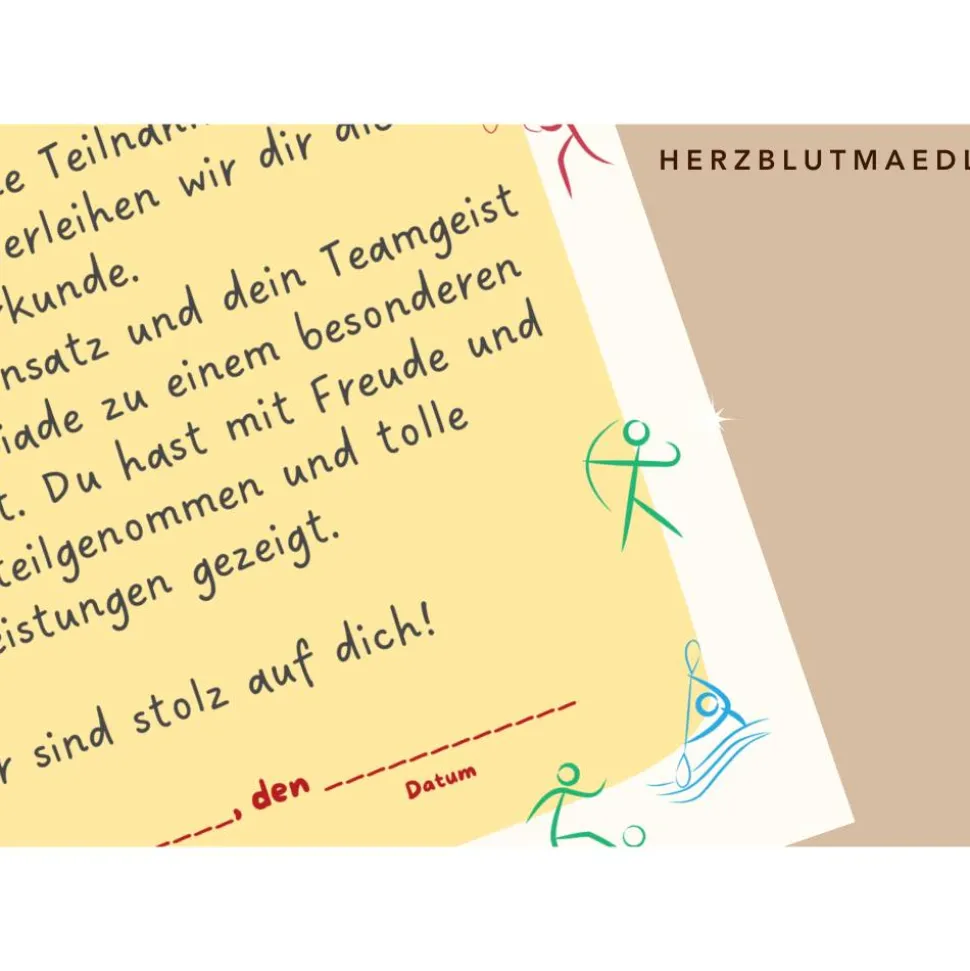 HERZBLUTMAEDL
e Teilnah
erleihen wir dir die
kunde.
nsatz und dein Teamgeist
iade zu einem besonderen
t. Du hast mit Freude und
teilgenommen und tolle
eistungen gezeigt.
r sind stolz auf dich!
, den
Datum